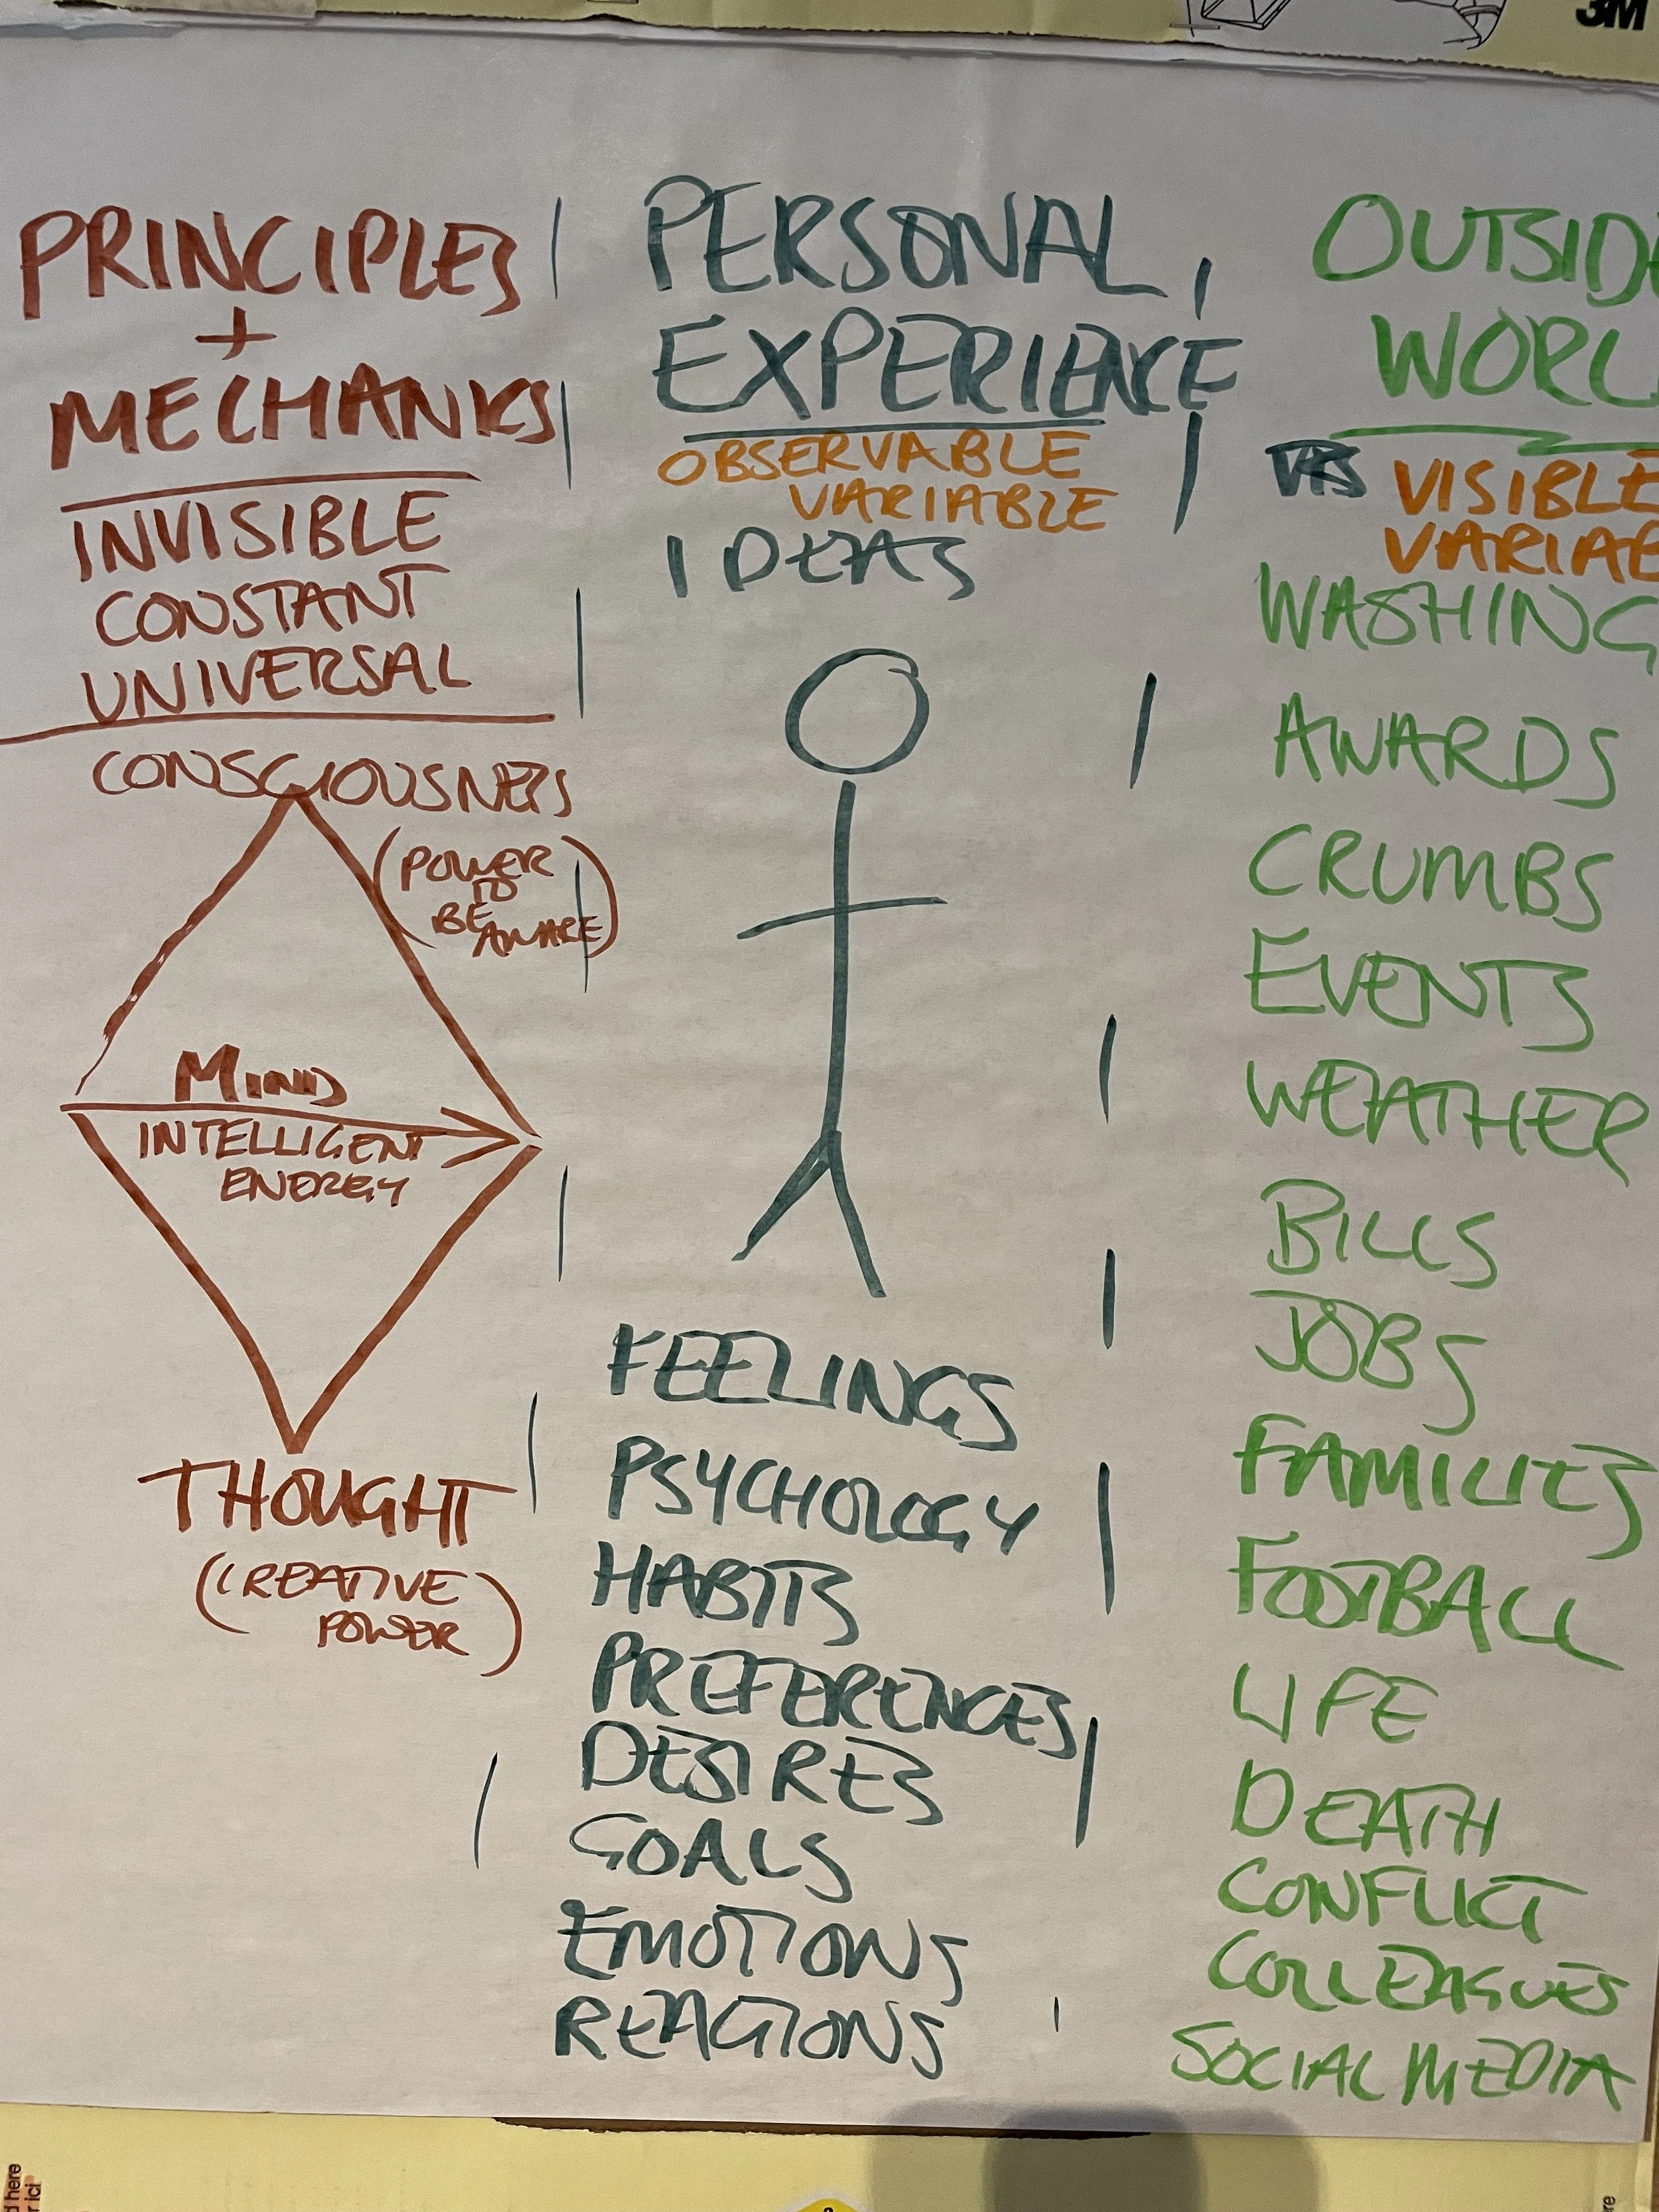 3M
PRINCIPLES
+
MECHANICS
INVISIBLE
CONSTANT
UNIVERSAL
CONSCIOUSNESS
(POWER
TO
BE
AWARE)
MIND
INTELLIGENT
ENERGY
THOUGHT
(CREATIVE
POWER)
PERSONAL
EXPERIENCE
OBSERVABLE
VARIABLE
IDEAS
FEELINGS
PSYCHOLOGY
HABITS
PREFERENCES
DESIRES
GOALS
EMOTIONS
REACTIONS
OUTSIDE
WORL
VISIBLE
VARIAB
WASHING
AWARDS
CRUMBS
EVENTS
WEATHER
BILLS
JOBS
FAMILIES
FOOTBALL
LIFE
DEATH
CONFLICT
COLLEAGUES
SOCIAL MEDIA
d here
r ici